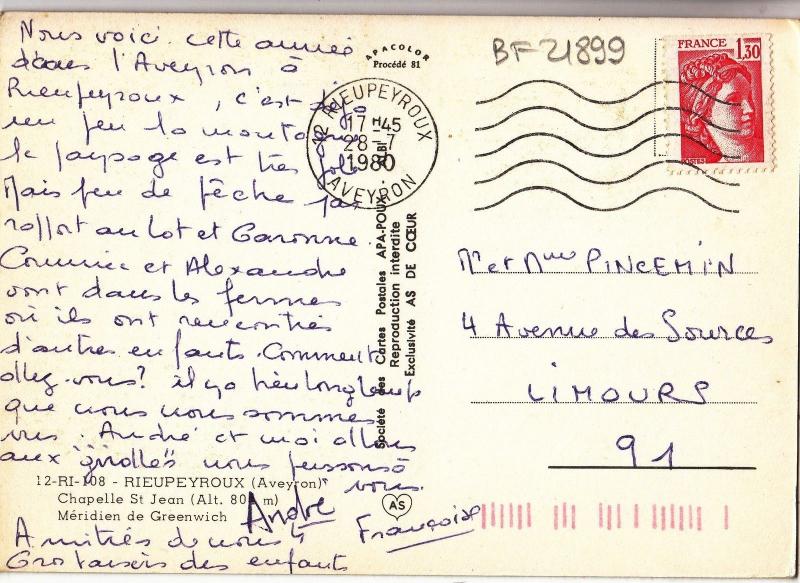 Nous voici cette année
dans l'Aveyron à
Rieupeyroux, c'est déjà
un peu la montagne
le paysage est très joli
Mais peu de pêche par
rapport au Lot et Garonne.
et Alexandre
vont dans les fermes
où ils ont rencontrés
d'autres enfants. Comment
allez-vous? il y a bien longtemps
que nous nous sommes
vus. André et moi allons
aux "girolles" nous pensons à
vous.
André
Françoise
Amitiés de nous 4
Gros baisers des enfants
12-RI-108 - RIEUPEYROUX (Aveyron)
Chapelle St Jean (Alt. 80 m)
Méridien de Greenwich
AS
APACOLOR
Procédé 81
Société des Cartes Postales APA-POUX
Reproduction interdite
Exclusivité AS DE CŒUR
12 RIEUPEYROUX
17 H 45
28 - 7
1980
AVEYRON
BF 21899
FRANCE 1,30
POSTES
Mr et Mme PINCEMIN
4 Avenue des Sources
LIMOURS
91